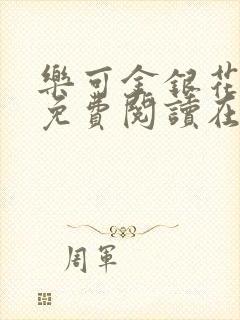 樂可金銀花
免費閱讀在
周軍